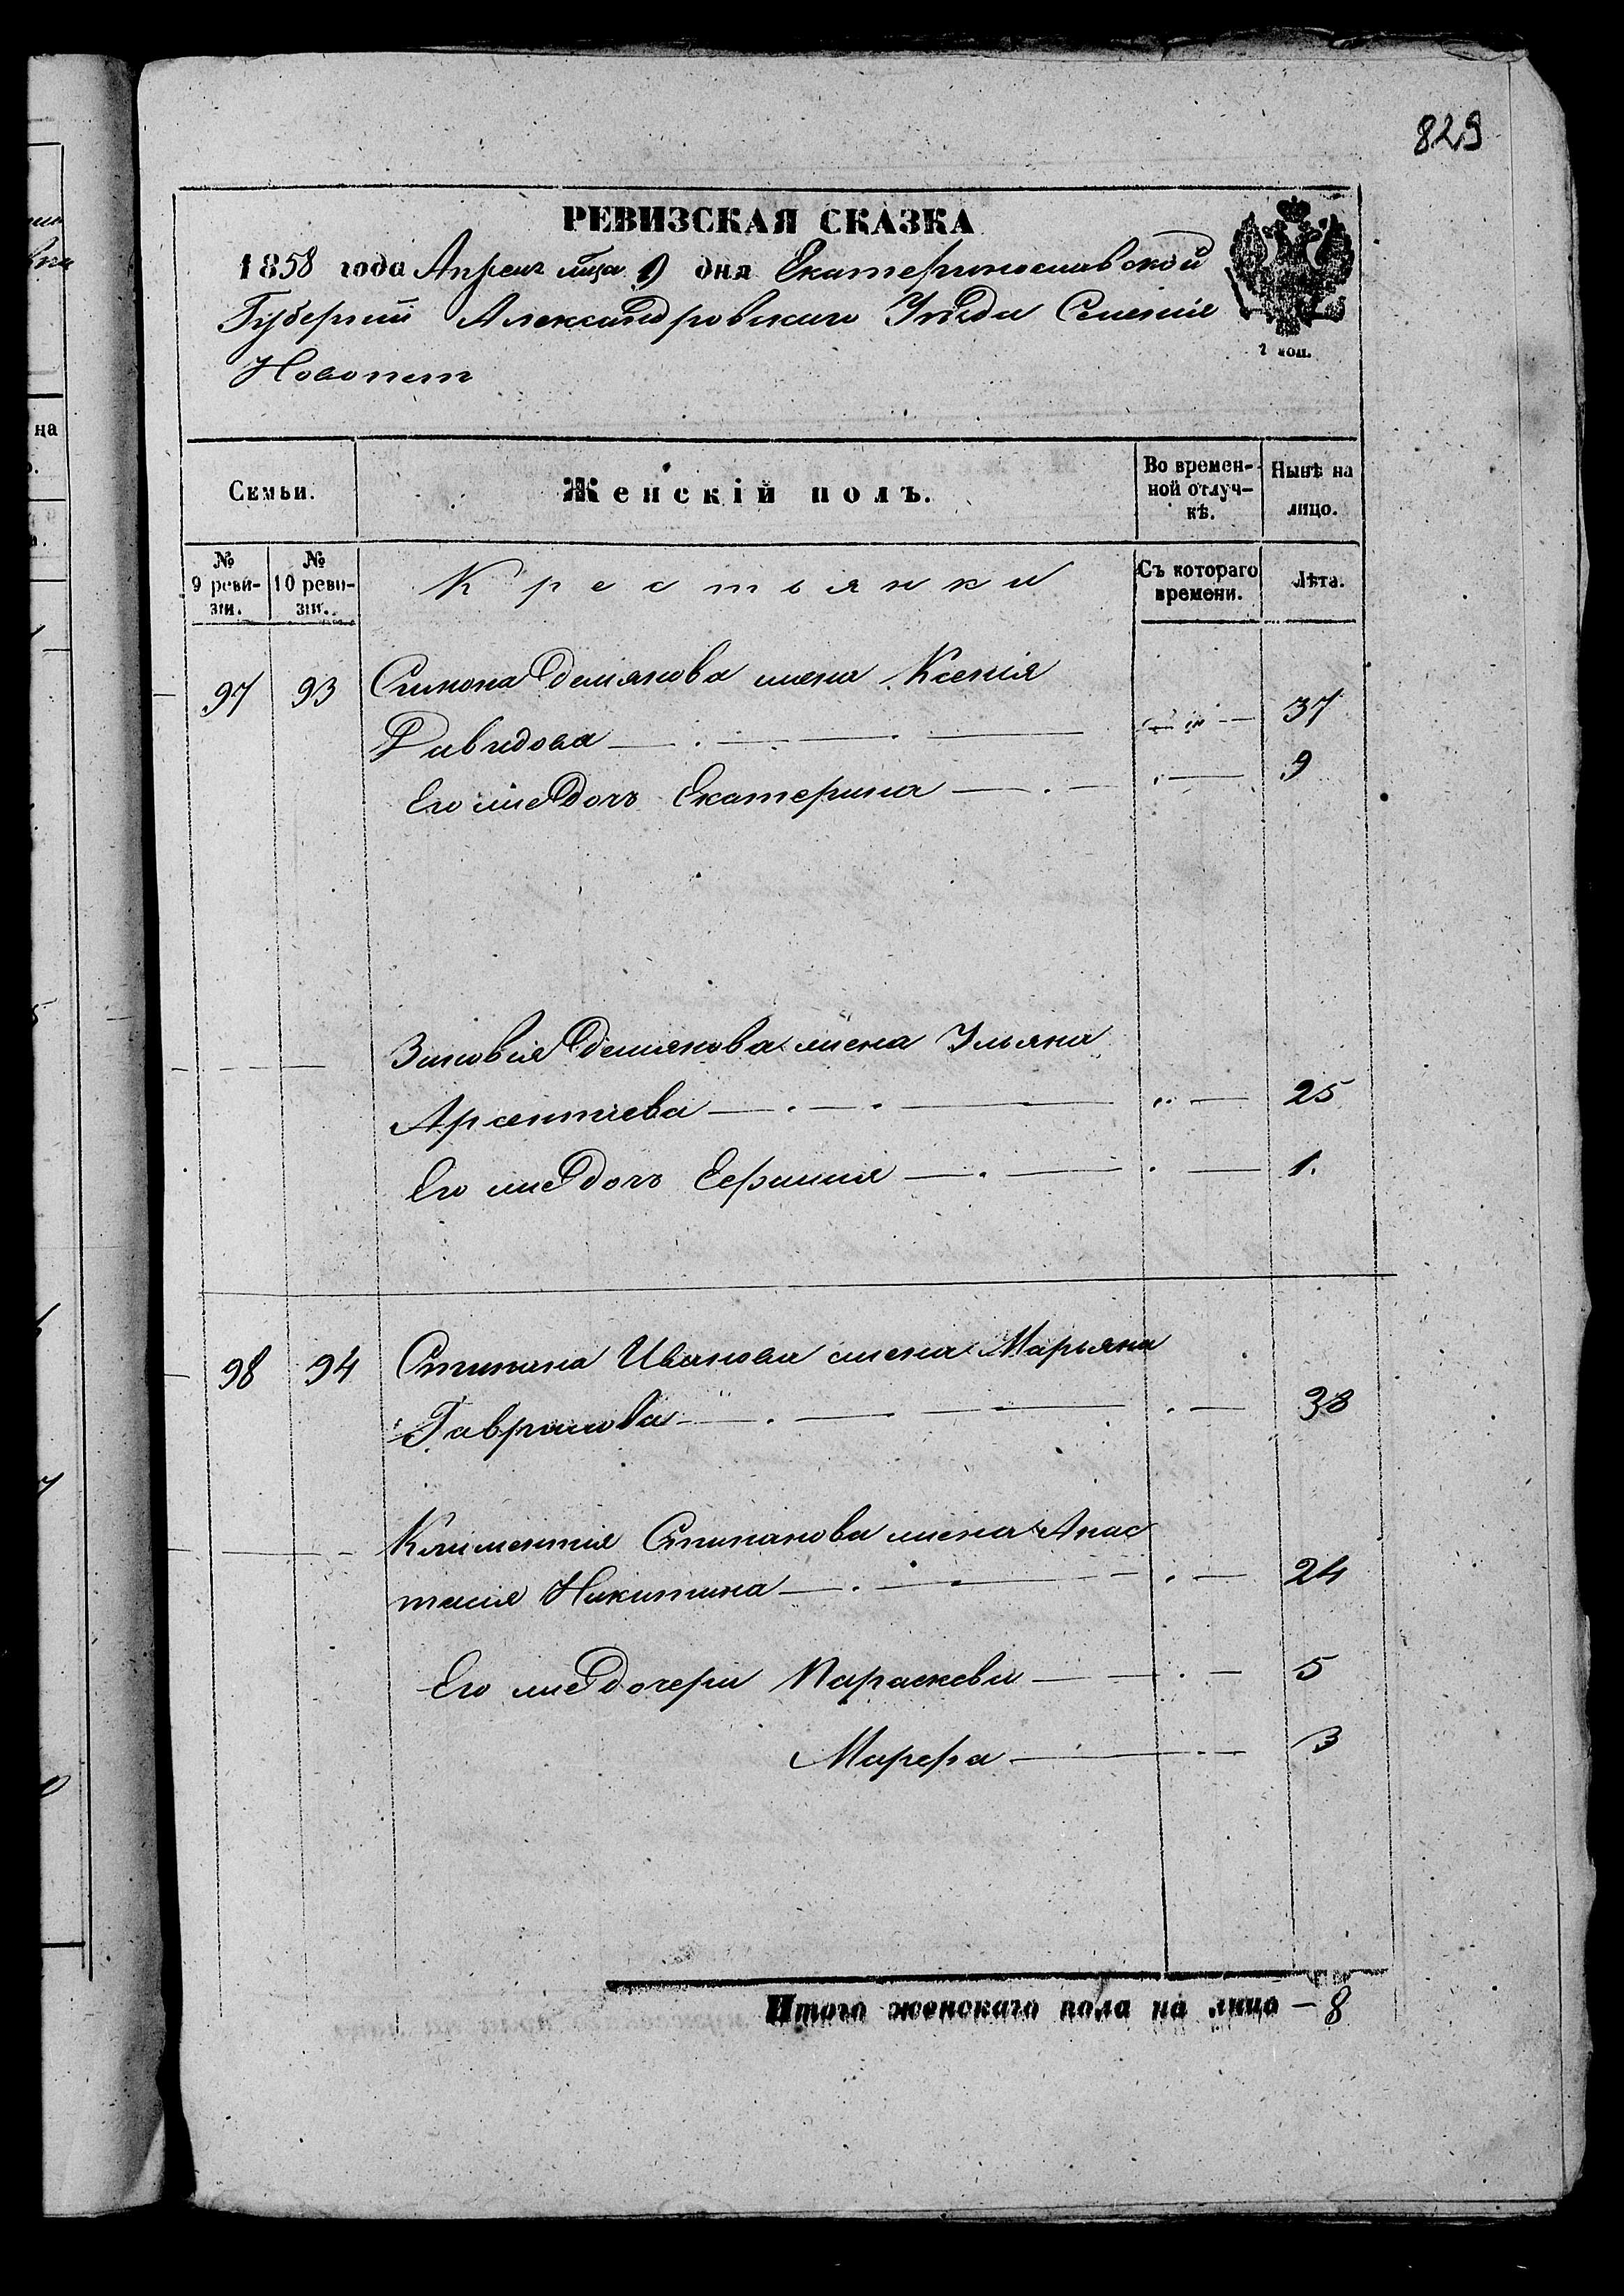 829
РЕВИЗСКАЯ СКАЗКА
1858 года Апреля мца 9 дня Екатеринославской
Губернии Александровскаго Уѣзда Селенiе
2 коп.
Семьи.
Женскiй полъ.
Во времен-
ной отлуч-
кѣ.
Нынѣ на
лицо.
№
9 реви-
зiи.
№
10 реви-
зiи.
Крестьянки
Съ котораго
времени.
Лѣта.
97 93 Симона Демянова жена Ксенiя
Давидова 37
Его же дочь Екатерина 9
Зиновия Демянова жена Ульяна
Арсентиева 25
Его же дочь 1.
98 94 Степана Иванова жена Марьяна
Гаврилова 38
Климентия Степанова жена Анас
тасия Никитина 24
Его же дочери Параскева 5
Марфа 3
Итого женскаго пола на лицо – 8
на